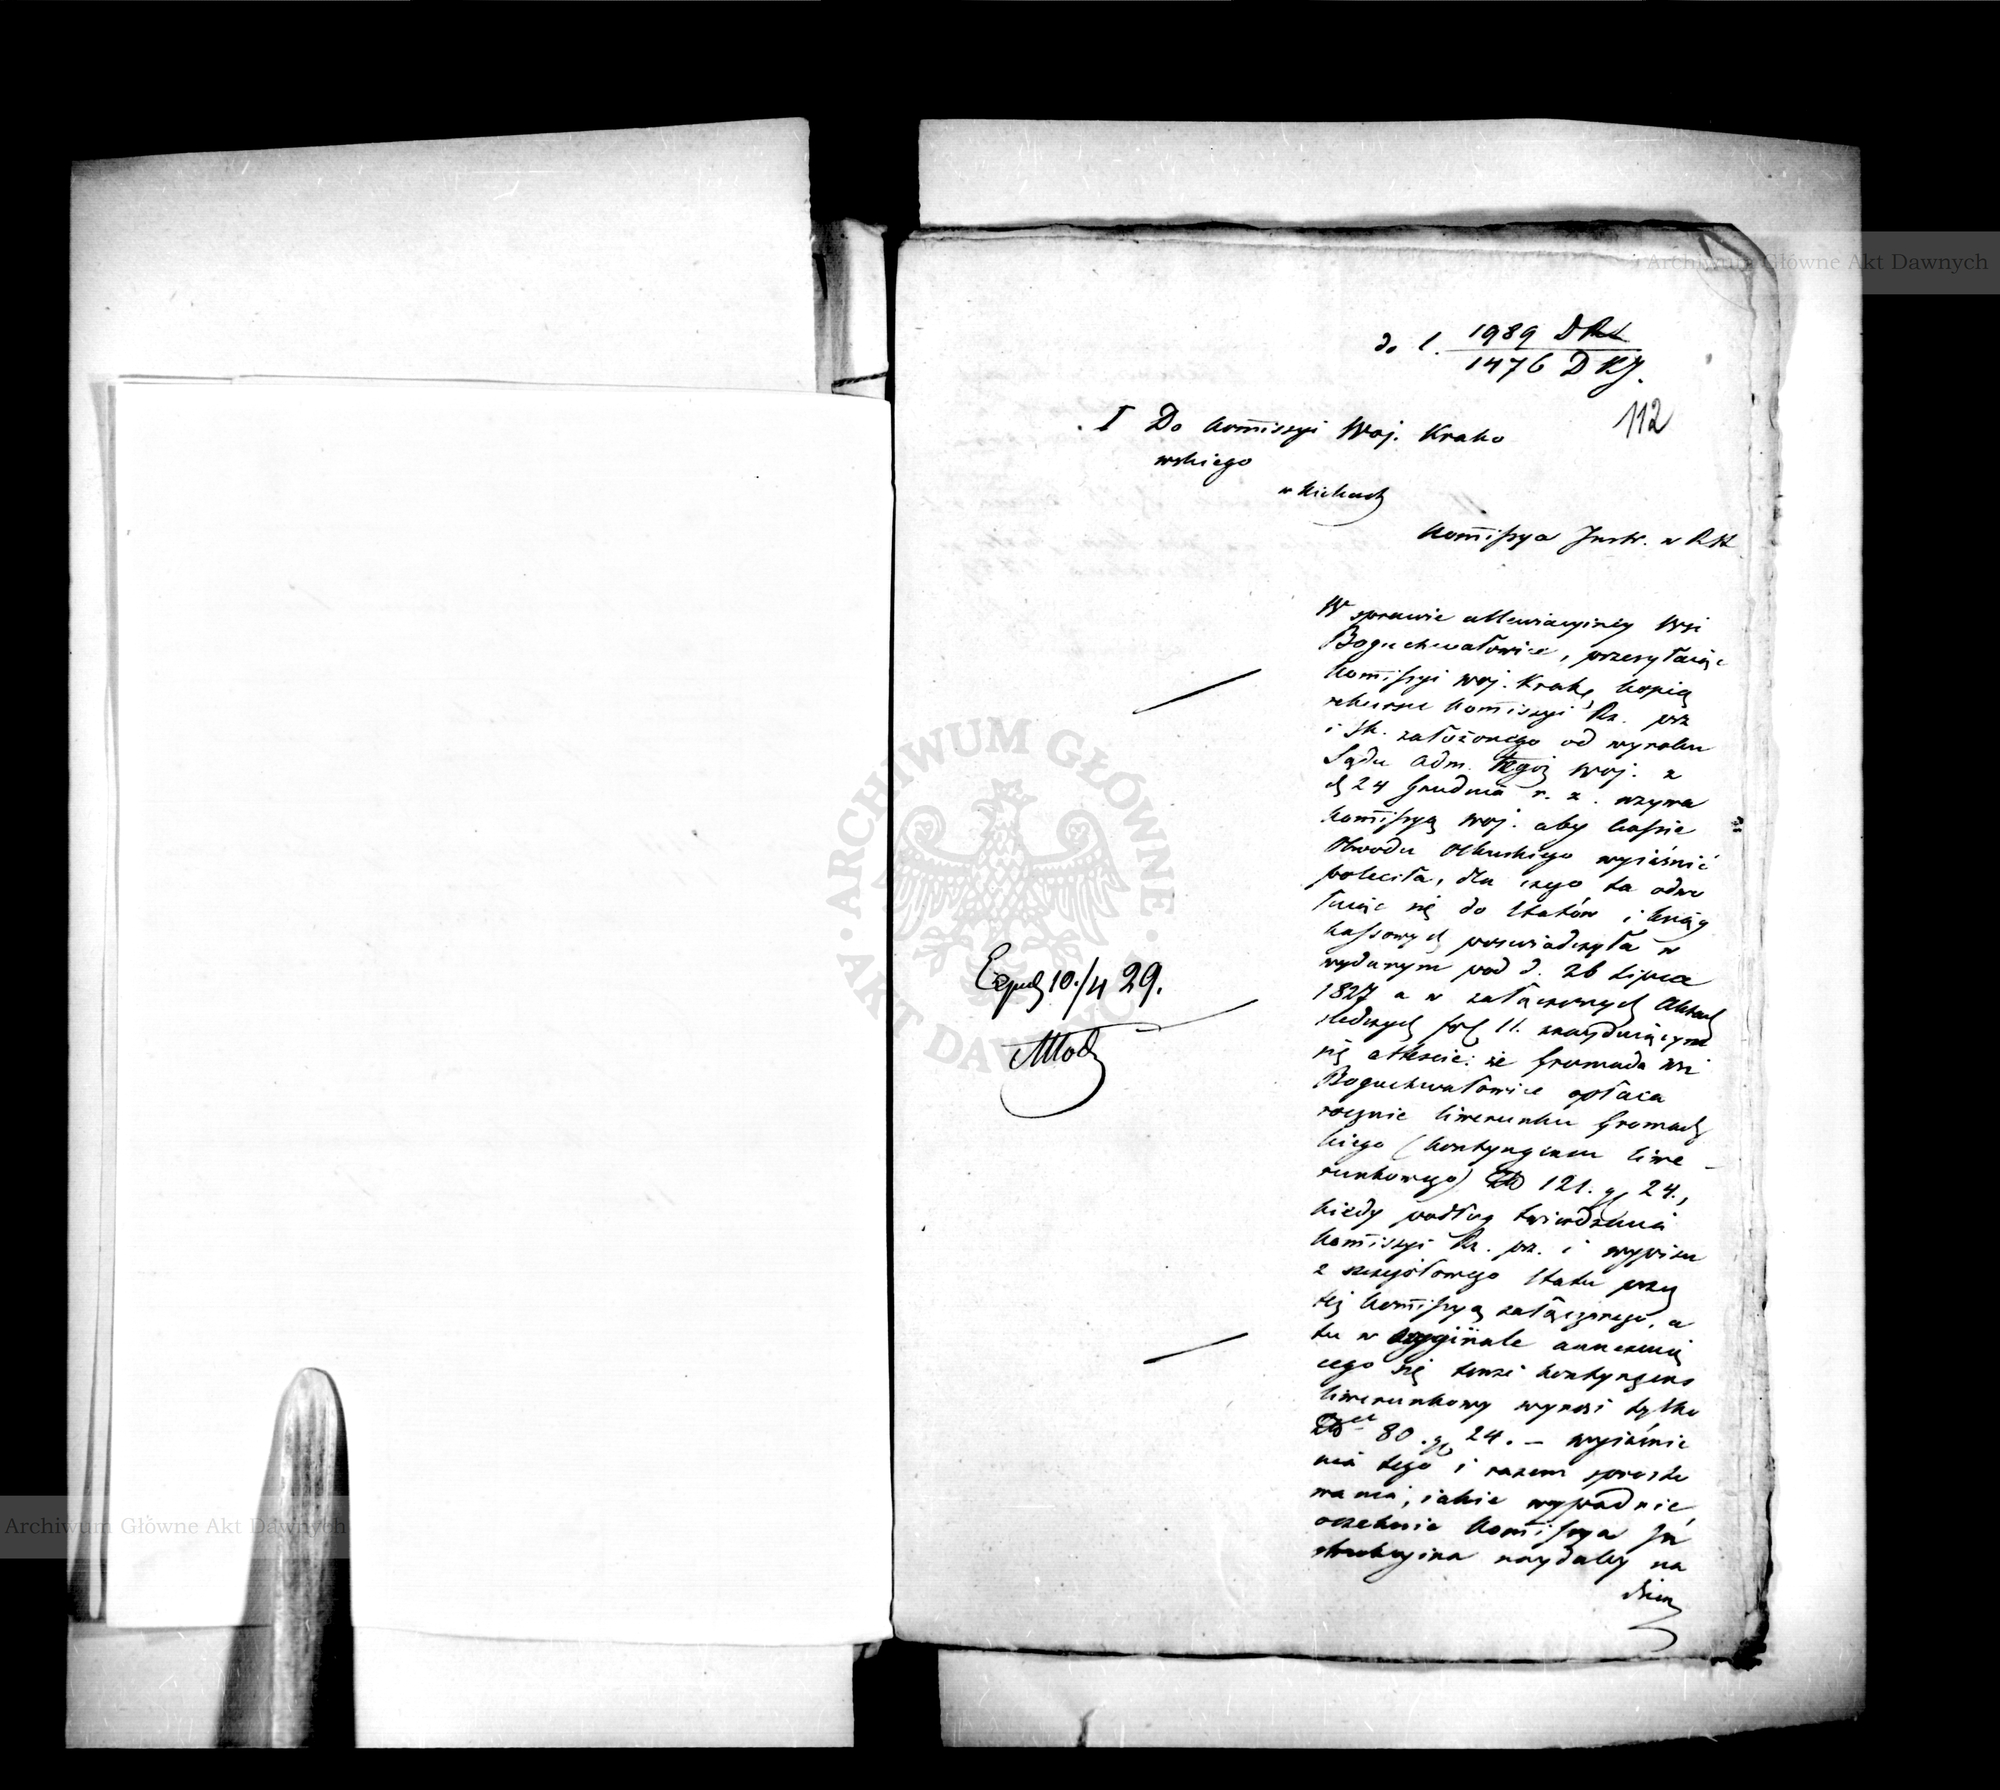 do l. 1989 DRt
1476 DKJ.
112
I Do Komissyi Woj. Krako
wskiego
w Kielcach
Komissya Instr. w RSt
W sprawie allewiacyiney Wsi
Boguchwałowice, przesyłaiąc
Komissyi woj. Krakow kopią
rekursu Komissyi Rz. prz
i Sk. założonego od wyroku
Sądu Adm. tegoż Woj. z
d 24 Grudnia r. z. wzywa
Komissyą woj. aby kassie
Obwodu Olkuskiego wyiaśnić
poleciła, dla czego ta odwo
łuiąc się do Etatów i ksiąg
kassowych poswiadczyła w
wydanym pod d. 26 Lipca
1827 a w załączonych Aktach
sledczych fol 11. znayduiącym
się atteście: że Gromada wsi
Boguchwałowice opłaca
rocznie liwerunku Gromadz
kiego (kontyngensu liwe-
runkowego) Złp 121. gr 24.,
kiedy podług twierdzenia
Komissyi Rz. prz. i wypisu
z szczegółowego Etatu przez
tęż Komissyą załączonego, a
tu w oryginale
cego się tenże kontyngens
liwerunkowy wynosi tylko
Złp 80. gr 24. – wyiaśnie
nia tego i razem sprosto
wania, iakie wypadnie,
oczekuie Komissya In
strukcyina naydaley na
dzien
Exped 10./4 29.
Archiwum Główne Akt Dawnych
ARCHIWUM GŁÓWNE
AKT DAWNYCH
Archiwum Główne Akt Dawnych